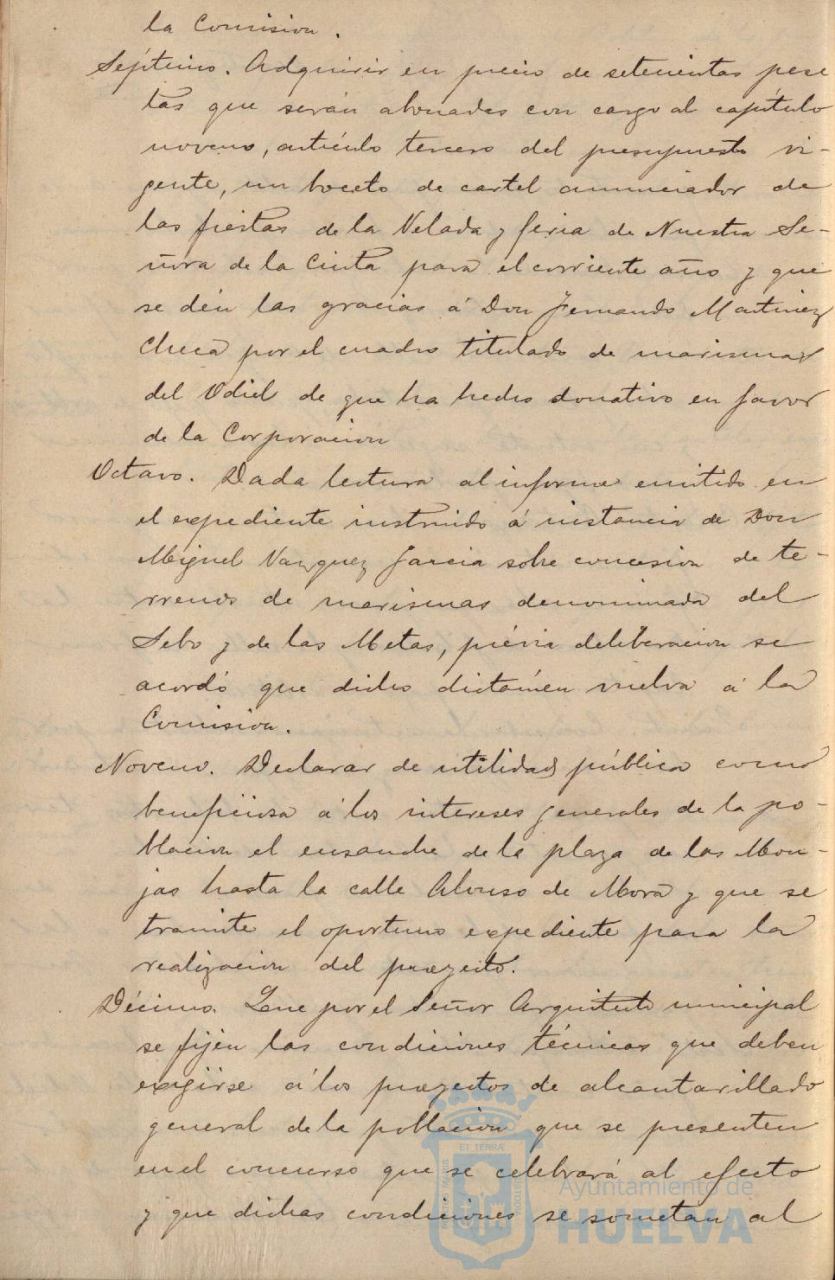 la Comision.
Séptimo. Adquirir en precio de setecientas pese
tas que serán abonadas con cargo al capítulo
noveno, artículo tercero del presupuesto vi-
gente, un boceto de cartel anunciador de
las fiestas de la Velada y feria de Nuestra Se-
ñora de la Cinta para el corriente año y que
se dén las gracias á Don Fernando Martinez
Checa por el cuadro titulado de marismas
del Odiel de que ha hecho donativo en favor
de la Corporacion
Octavo. Dada lectura al informe emitido en
el expediente instruido á instancia de Don
Miguel Vazquez Garcia sobre concesion de te-
rrenos de marismas denominada del
Sebo y de las Metas, prévia deliberacion se
acordó que dicho dictámen vuelva á la
Comision.
Noveno. Declarar de utilidad pública como
beneficiosa á los intereses generales de la po-
blacion el ensanche de la plaza de las Mon-
jas hasta la calle Alonso de Mora y que se
tramite el oportuno expediente para la
realizacion del proyecto.
Décimo. Que por el Señor Arquitecto municipal
se fijen las condiciones técnicas que deben
exigirse á los proyectos de alcantarillado
general de la poblacion que se presenten
en el concurso que se celebrará al efecto
y que dichas condiciones se sometan al
ET TERRA
Ayuntamiento de
HUELVA